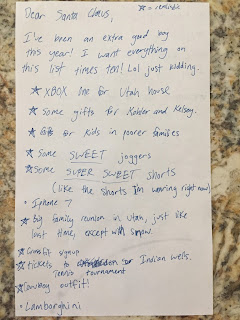 Dear Santa Claus,
★ = realistic
I've been an extra good boy
this year! I want everything on
this list times ten! Lol just kidding.
★ XBOX One for Utah house
★ Some gifts for Kohler and Kelsey.
★ for kids in poorer families
★ Some SWEET joggers
★ Some SUPER SWEET shorts
(like the shorts I'm wearing right now)
• Iphone 7
★ Big family reunion in Utah, just like
last time, except with snow.
★ Crossfit signup
★ tickets to Indian Wells.
Tennis tournament
★ Cowboy outfit!
• Lamborghini